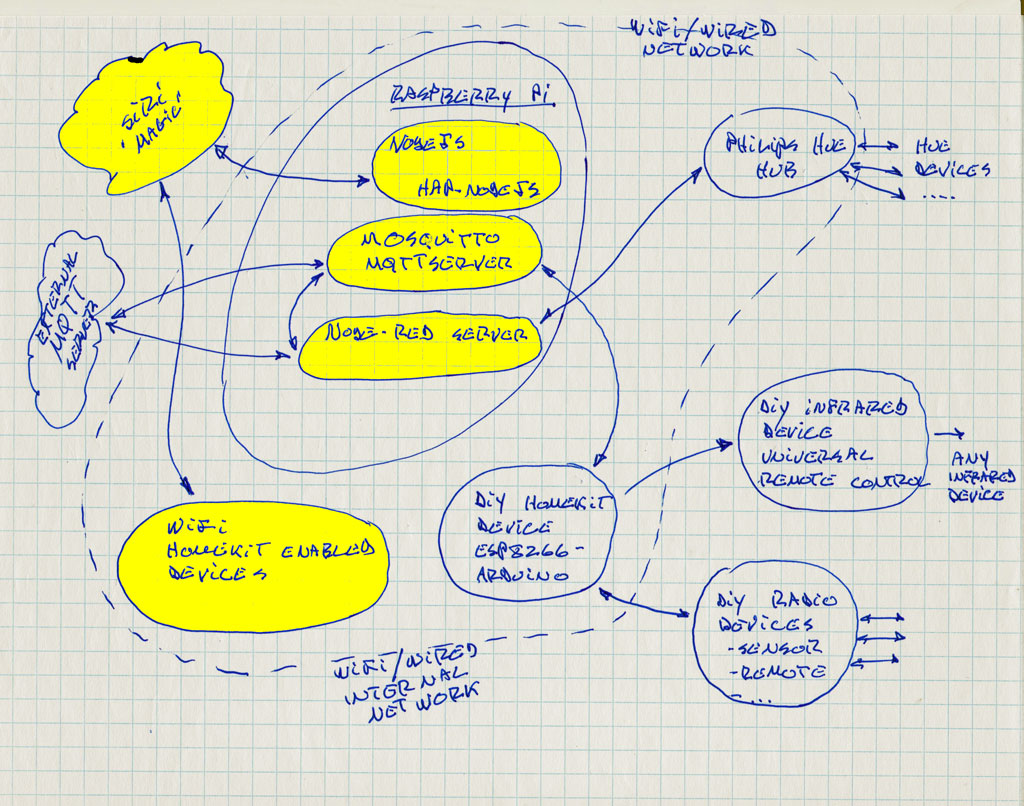 WIFI/WIRED
NETWORK
SIRI
MAGIC
RASPBERRY PI
NODEJS
HAP-NODEJS
PHILIPS HUE
HUB
HUE
DEVICES
....
MOSQUITTO
MQTT SERVER
EXTERNAL
MQTT
SERVER
NODE-RED SERVER
DIY INFRARED
DEVICE
UNIVERSAL
REMOTE CONTROL
ANY
INFRARED
DEVICE
WIFI
HOMEKIT ENABLED
DEVICES
DIY HOMEKIT
DEVICE
ESP8266-
ARDUINO
DIY RADIO
DEVICES
-SENSOR
-REMOTE
-...
WIFI/WIRED
INTERNAL
NETWORK